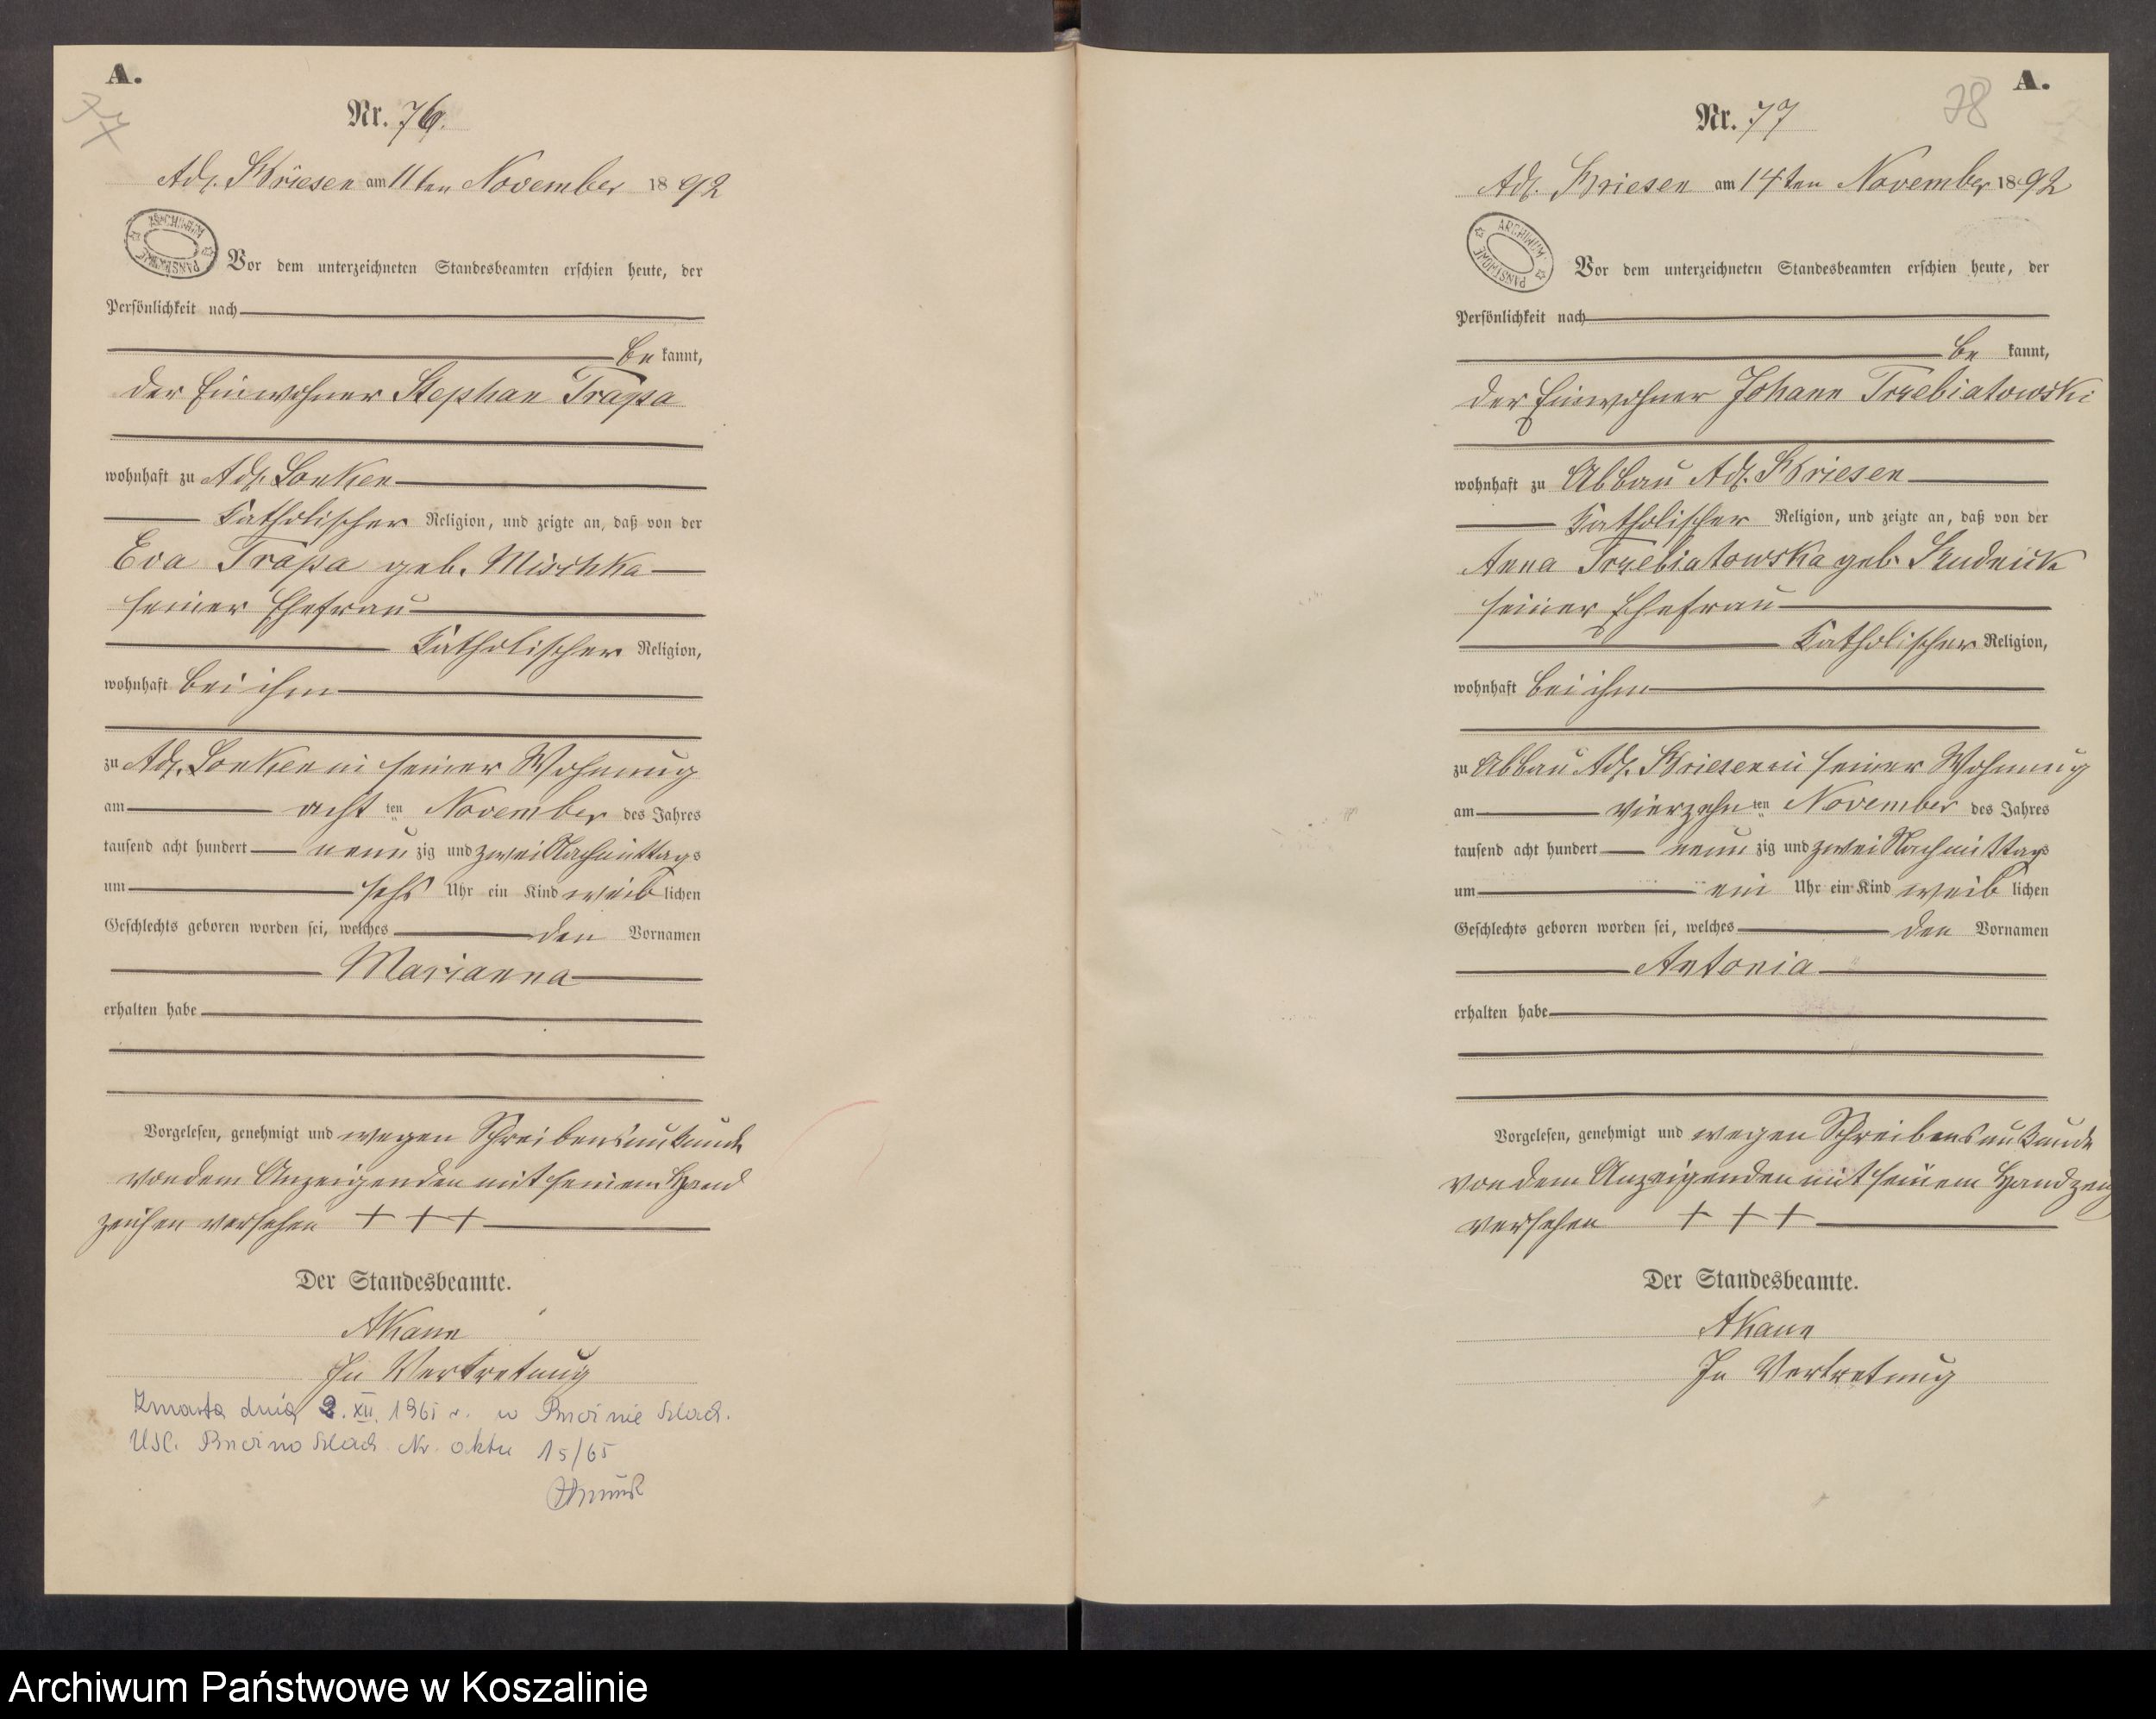 A.
77
Nr. 76.
Adl. Briesen am 11ten November 1892
ARCHIWUM PAŃSTWOWE
Vor dem unterzeichneten Standesbeamten erschien heute, der
Persönlichkeit nach
be kannt,
der Einwohner Stephan Trapa
wohnhaft zu Adl. Lonken
katholischer Religion, und zeigte an, daß von der
Eva Trapa geb. Mischka
seiner Ehefrau
katholischer Religion,
wohnhaft bei ihm
zu Adl. Lonken in seiner Wohnung
am acht ten November des Jahres
tausend acht hundert neun zig und zwei Nachmittags
um sechs Uhr ein Kind weib lichen
Geschlechts geboren worden sei, welches den Vornamen
Marianna
erhalten habe
Vorgelesen, genehmigt und wegen Schreibensunkunde
von dem Anzeigenden mit seinem Hand
zeichen versehen + + +
Der Standesbeamte.
AKann
In Vertretung
Zmarła dnia 2. XII. 1965 r. w Szlach.
USC. Szlach. Nr. aktu 15/65
A.
78
Nr. 77
Adl. Briesen am 14ten November 1892
ARCHIWUM PAŃSTWOWE
Vor dem unterzeichneten Standesbeamten erschien heute, der
Persönlichkeit nach
be kannt,
der Einwohner Johann Trzebiatowski
wohnhaft zu Abbau Adl. Briesen
katholischer Religion, und zeigte an, daß von der
Anna Trzebiatowska geb.
seiner Ehefrau
katholischer Religion,
wohnhaft bei ihm
zu Abbau Adl. Briesen in seiner Wohnung
am vierzehn ten November des Jahres
tausend acht hundert neun zig und zwei Nachmittags
um ein Uhr ein Kind weib lichen
Geschlechts geboren worden sei, welches den Vornamen
Antonia
erhalten habe
Vorgelesen, genehmigt und wegen Schreibensunkunde
von dem Anzeigenden mit seinem Handzeich
versehen + + +
Der Standesbeamte.
AKann
In Vertretung
Archiwum Państwowe w Koszalinie